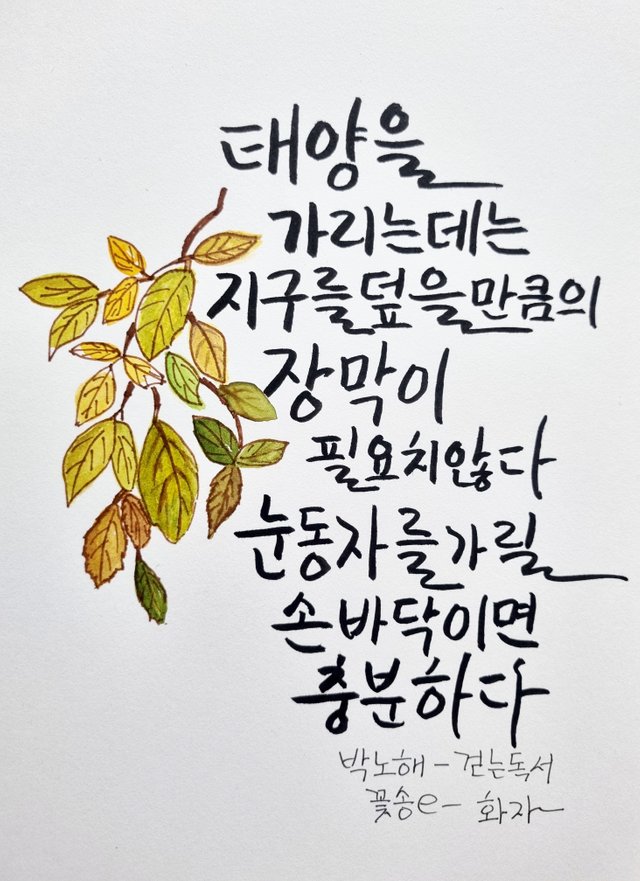 태양을
가리는데는
지구를덮을만큼의
장막이
필요치않다
눈동자를가릴
손바닥이면
충분하다
박노해-걷는독서
꽃송e- 화자